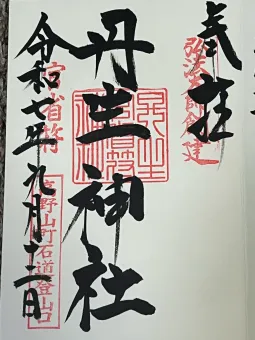 奉拝
弘法大師創建
丹生神社
令和七年九月十二日
高野山町石道登山口